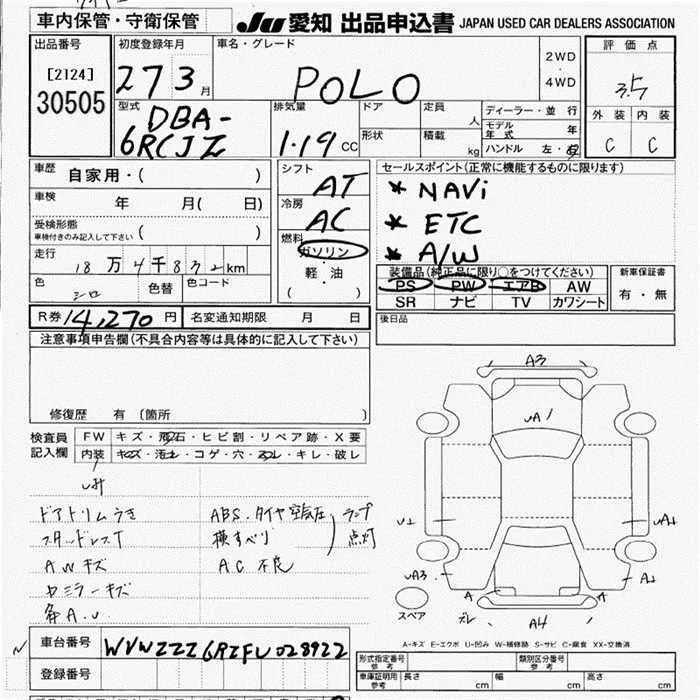 車内保管・守衛保管
JU 愛知 出品申込書 JAPAN USED CAR DEALERS ASSOCIATION
出品番号
[2124]
30505
初度登録年月
27 3 月
車名・グレード
POLO
2WD
・
4WD
評価点
3.5
外装 内装
C C
型式
DBA-
6RCJZ
排気量
1.19 CC
ドア
定員 人
形状
積載 kg
ディーラー・並行
モデル年式 年
ハンドル 左・右
車歴 自家用・( )
車検 年 月( 日)
受検形態
車検付きのみ記入して下さい ( )
走行 18万4千832km
色 シロ 色替 色コード
シフト
AT
冷房
AC
燃料
ガソリン
・
軽・油
( )
セールスポイント(正常に機能するものに限ります)
* NAVi
* ETC
* A/W
装備品(純正品に限り○をつけてください)
PS PW エアB AW
SR ナビ TV カワシート
新車保証書
有・無
R券 14,270 円 名変通知期限 月 日
後日品
注意事項申告欄(不具合内容等は具体的に記入して下さい)
修復歴 有 (箇所 )
検査員
記入欄
FW キズ・飛石・ヒビ割・リペア跡・X要
内装 キズ・汚れ・コゲ・穴・スレ・キレ・破レ
ドアトリムうき
スタッドレスT
AWキズ
ABS・タイヤ空気圧
横すべり
ランプ
点灯
AC不良
A3
uA1
uA3
A
A
スペア
A4
A-キズ E-エクボ U-凹み W-補修跡 S-サビ C-腐食 XX-交換済
車台番号 WVWZZZ6RZFU028922
登録番号
形式指定番号
参考
類別区分番号
参考
車庫証明用
参考
長さ cm 幅 cm 高さ cm